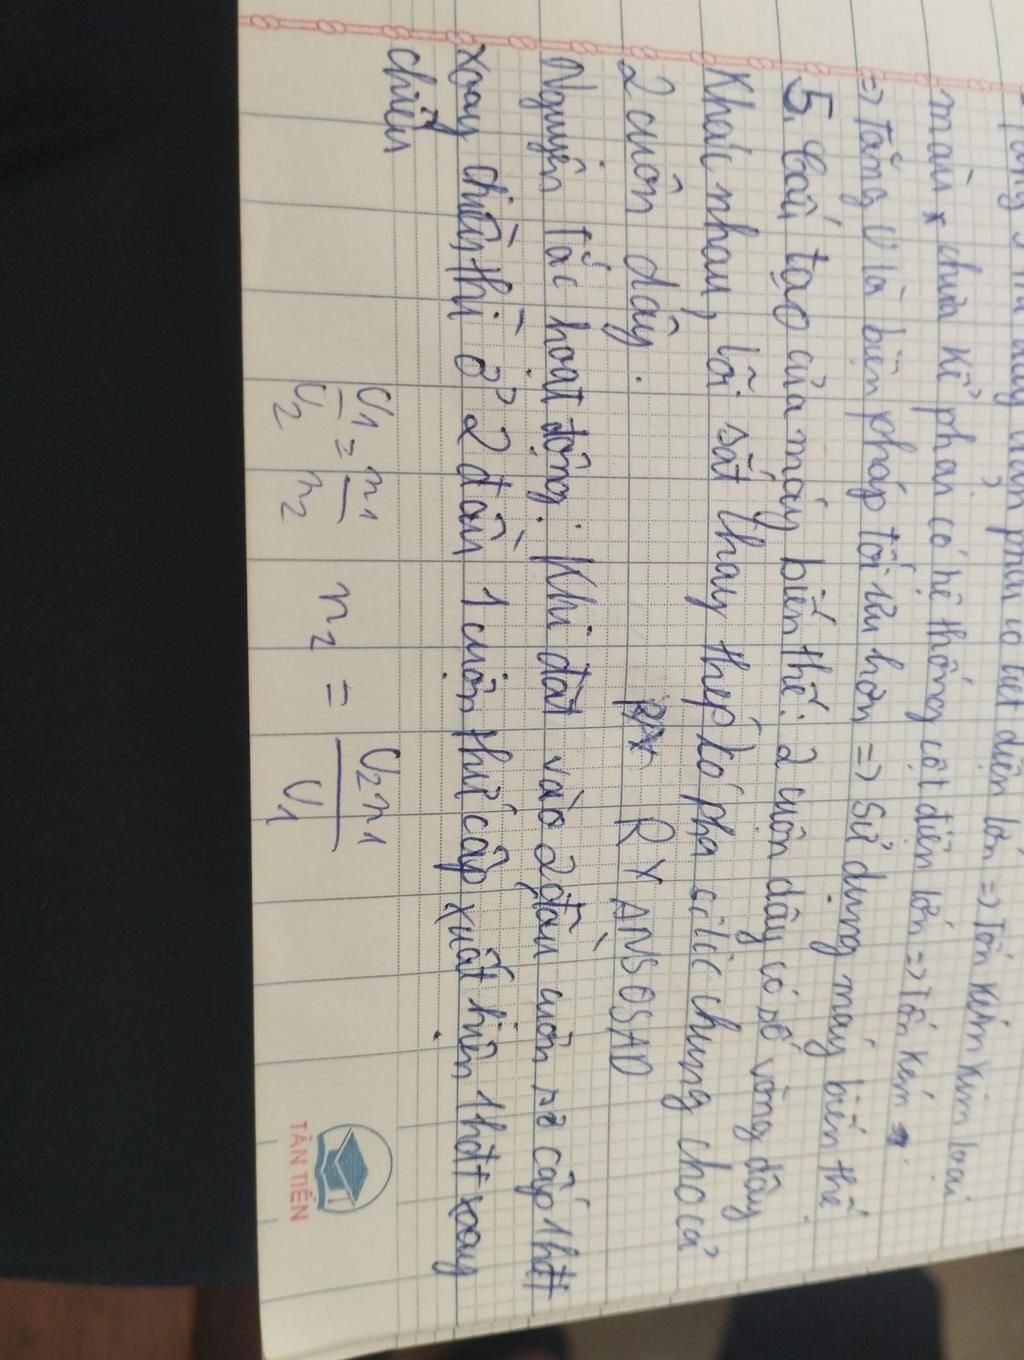 dây phải có tiết diện lớn => Tốn kém kim loại
màu x chưa kể phải có hệ thống cột điện lớn => Tốn kém
=> Tăng U là biện pháp tối ưu hơn => Sử dụng máy biến thế
5. Cấu tạo của máy biến thế: 2 cuộn dây có số vòng dây
Khác nhau, lõi sắt hay thép có pha silic chung cho cả
2 cuôn dây.
R x ANSOSAD
Nguyên tắc hoạt động: Khi đăt vào 2 đầu cuôn sơ cấp 1 hđt
xoay chiều thì ở 2 đầu 1 cuộn thứ cấp xuất hiện 1 hđt xoay
chiều
U1/U2 = n1/n2 n2 = U2n1/U1
TÂN TIẾN